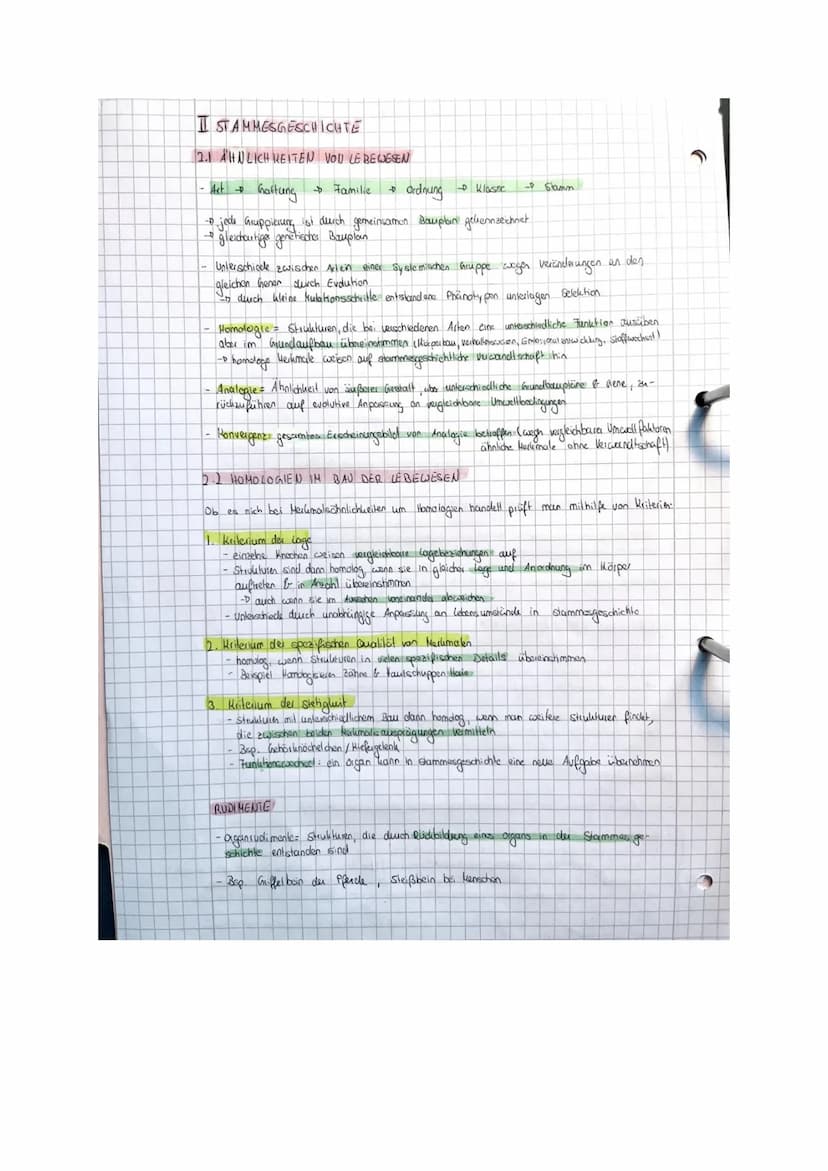 II STAMMESGESCHICHTE
2.1 ÄHNLICHKEITEN VON LEBEWESEN
- Art → Gattung → Familie → Ordnung → Klasse → Stamm
→ jede Gruppierung ist durch gemeinsamen Bauplan gekennzeichnet
→ gleichartiger genetischer Bauplan
- Unterschiede zwischen Arten einer Systemischen Gruppe wegen Veränderungen an den
gleichen Genen durch Evolution
→ durch kleine Mutationsschritte entstandene Phänotypen unterlagen Selektion
- Homologie = Strukturen, die bei verschiedenen Arten eine unterschiedliche Funktion ausüben
aber im Grundaufbau übereinstimmen (Körperbau, Verhaltensweisen, Embryonalentwicklung, Stoffwechsel)
→ homologe Merkmale weisen auf stammesgeschichtliche Verwandtschaft hin
- Analogie = Ähnlichkeit von äußerer Gestalt, aber unterschiedliche Grundbaupläne & Gene, zu-
rückzuführen auf evolutive Anpassung an vergleichbare Umweltbedingungen
- Konvergenz: gesamtes Erscheinungsbild von Analogie betroffen (wegen vergleichbare Umweltfaktoren
ähnliche Merkmale ohne Verwandtschaft)
2.2 HOMOLOGIEN IM BAU DER LEBEWESEN
Ob es sich bei Merkmalsähnlichkeiten um Homologien handelt prüft man mithilfe von Kriterien:
1. Kriterium der Lage
- einzelne Knochen weisen vergleichbare Lagebeziehungen auf
- Strukturen sind dann homolog, wenn sie in gleicher Lage und Anordnung im Körper
auftreten & in Anzahl übereinstimmen
→ auch wenn sie im Aussehen voneinander abweichen
- Unterschiede durch unabhängige Anpassung an Lebensumstände in Stammesgeschichte
2. Kriterium der spezifischen Qualität von Merkmalen
- homolog, wenn Strukturen in vielen spezifischen Details übereinstimmen
- Beispiel Zähne & Hautschuppen Haie
3. Kriterium der Stetigkeit
- Strukturen mit unterschiedlichem Bau dann homolog, wenn man weitere Strukturen findet,
die zwischen beiden Merkmalsausprägungen vermitteln
- Bsp. Gehörknöchelchen / Kiefergelenk
- Funktionswechsel: ein Organ kann in Stammesgeschichte eine neue Aufgabe übernehmen
RUDIMENTE
- Organrudimente = Strukturen, die durch Rückbildung eines Organs in der Stammesge-
schichte entstanden sind
- Bsp. Griffelbein der Pferde, Steißbein bei Menschen